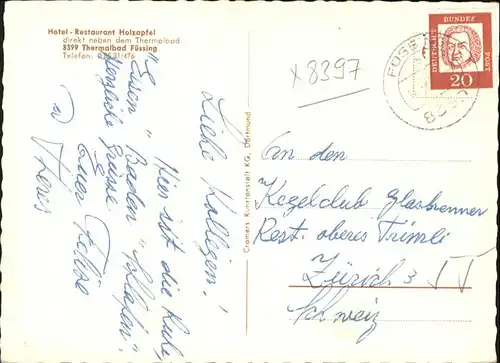 Hotel - Restaurant Holzapfel
direkt neben dem Thermalbad
8399 Thermalbad Füssing
Telefon: 08531/476
x 8397
DEUTSCHE BUNDESPOST
20
FÜSSING
Cramers Kunstanstalt KG, Dortmund
Liebe Kollegen!
Hier ist die Ruhe,
"Essen" "Baden" "Schlafen".
Herzliche Grüsse
Euer Felice
u Theres
An den
Kegelclub Glasbrenner
Rest. oberes Triemli
Zürich 3
Schweiz